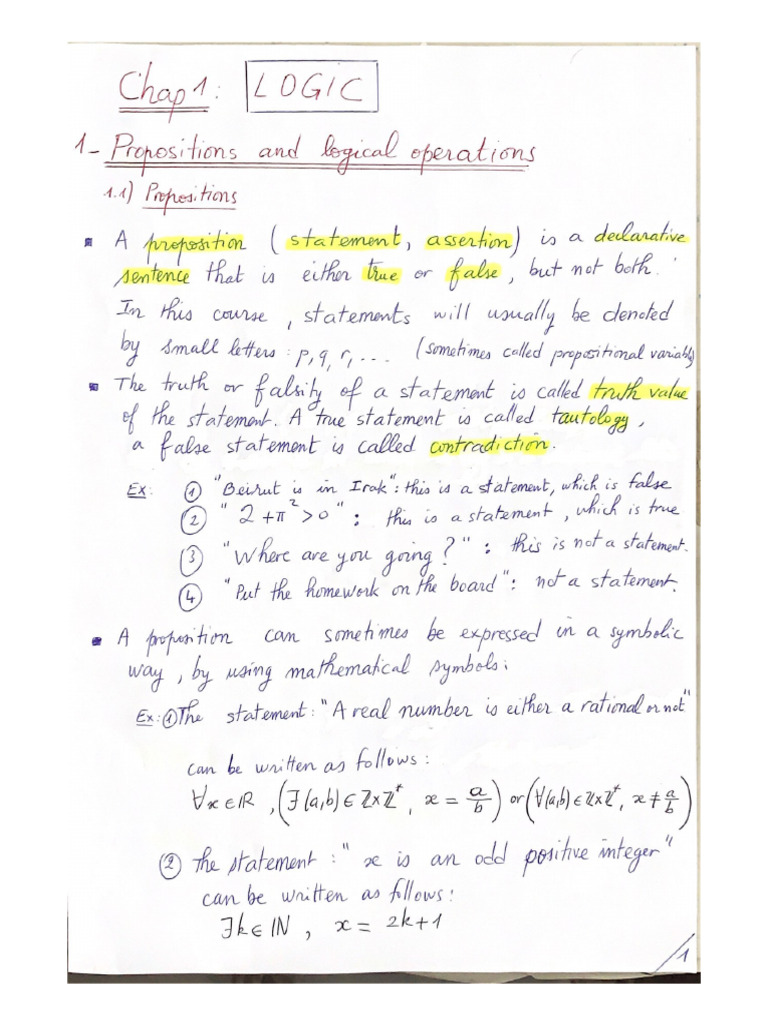 Chap1: LOGIC
1- Propositions and logical operations
1.1) Propositions
A proposition (statement, assertion) is a declarative
sentence that is either true or false, but not both.
In this course, statements will usually be denoted
by small letters: p, q, r, ... (sometimes called propositional variables)
The truth or falsity of a statement is called truth value
of the statement. A true statement is called tautology,
a false statement is called contradiction.
Ex: ① "Beirut is in Irak": this is a statement, which is false
② "2+π²>0": this is a statement, which is true
③ "Where are you going?": this is not a statement.
④ "Put the homework on the board": not a statement.
A proposition can sometimes be expressed in a symbolic
way, by using mathematical symbols:
Ex: ① The statement: "A real number is either a rational or not"
can be written as follows:
∀x∈ℝ, (∃(a,b)∈ℤ×ℤ*, x = a/b) or (∀(a,b)∈ℤ×ℤ*, x≠a/b)
② The statement: "x is an odd positive integer"
can be written as follows:
∃k∈ℕ, x = 2k+1
/1